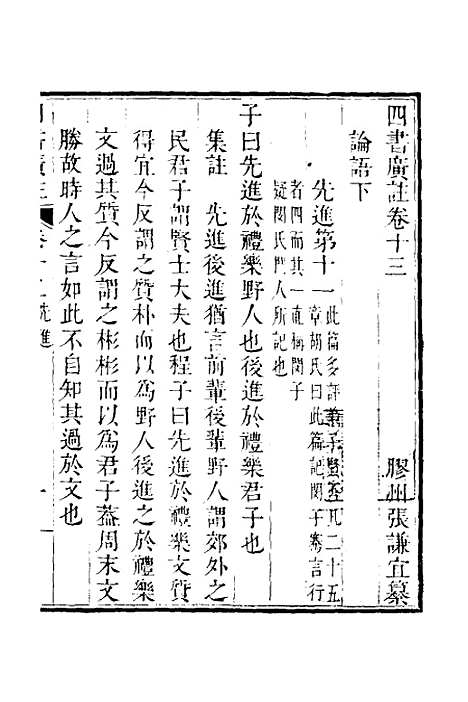 四書廣註卷十三　膠州張謙宜纂
論語下
先進第十一
此篇多評弟子賢否凡二十五
章胡氏曰此篇記閔子騫言行
者四而其一直稱閔子
疑閔氏門人所記也
子曰先進於禮樂野人也後進於禮樂君子也
集註　先進後進猶言前輩後輩野人謂郊外之
民君子謂賢士大夫也程子曰先進於禮樂文質
得宜今反謂之質朴而以為野人後進之於禮樂
文過其質今反謂之彬彬而以為君子蓋周末文
勝故時人之言如此不自知其過於文也
先進
一